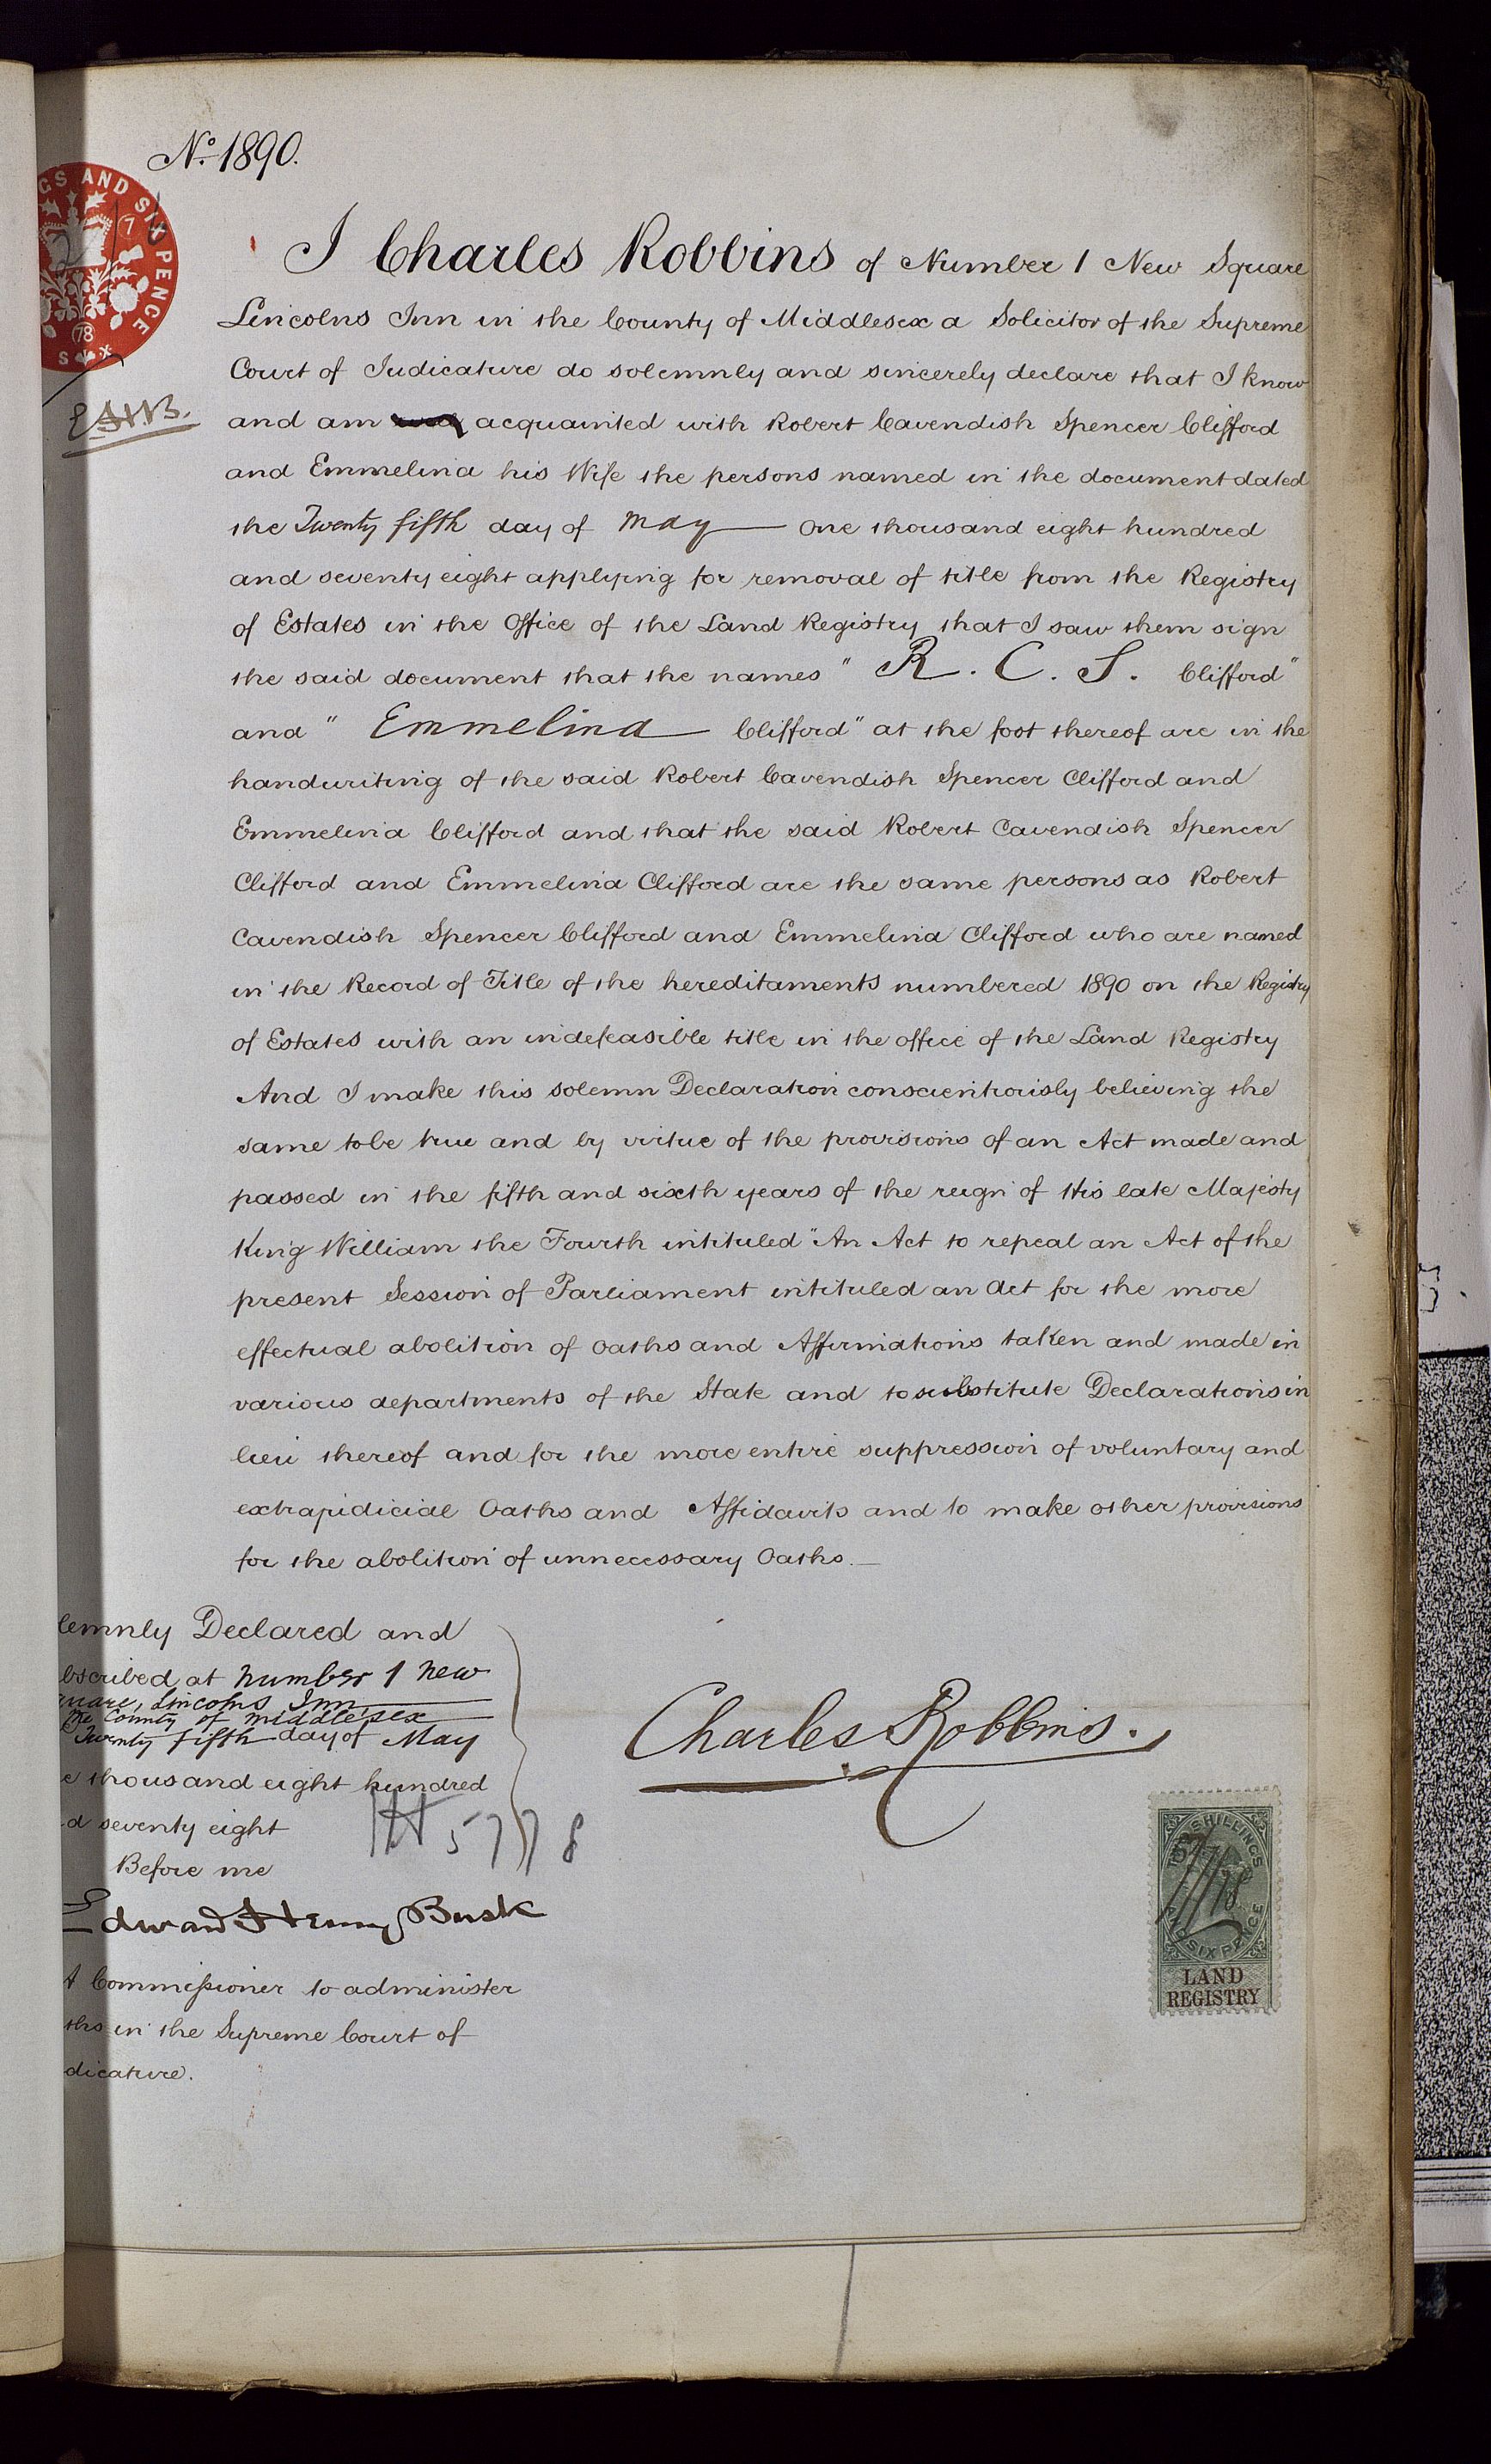 No. 1890.
GS AND SIX PENCE
7
78
S
E.H.B.
I Charles Robbins of Number 1 New Square
Lincolns Inn in the County of Middlesex a Solicitor of the Supreme
Court of Judicature do solemnly and sincerely declare that I know
and am acquainted with Robert Cavendish Spencer Clifford
and Emmelina his Wife the persons named in the document dated
the Twenty fifth day of May One thousand eight hundred
and seventy eight applying for removal of title from the Registry
of Estates in the Office of the Land Registry that I saw them sign
the said document that the names "R. C. S. Clifford"
and "Emmelina Clifford" at the foot thereof are in the
handwriting of the said Robert Cavendish Spencer Clifford and
Emmelina Clifford and that the said Robert Cavendish Spencer
Clifford and Emmelina Clifford are the same persons as Robert
Cavendish Spencer Clifford and Emmelina Clifford who are named
in the Record of Title of the hereditaments numbered 1890 on the Registry
of Estates with an indefeasible title in the office of the Land Registry
And I make this solemn Declaration conscientiously believing the
same to be true and by virtue of the provisions of an Act made and
passed in the fifth and sixth years of the reign of His late Majesty
King William the Fourth intituled "An Act to repeal an Act of the
present Session of Parliament intituled an Act for the more
effectual abolition of Oaths and Affirmations taken and made in
various departments of the State and to substitute Declarations in
lieu thereof and for the more entire suppression of voluntary and
extrajudicial Oaths and Affidavits and to make other provisions
for the abolition of unnecessary Oaths.
lemnly Declared and
bscribed at Number 1 New
quare, Lincolns Inn
the County of Middlesex
Twenty fifth day of May
e thousand eight hundred
d seventy eight
Before me
Edward Henry Busk
A Commissioner to administer
ths in the Supreme Court of
dicature.
Charles Robbins.
5 7 78
SHILLINGS
AND SIXPENCE
LAND
REGISTRY